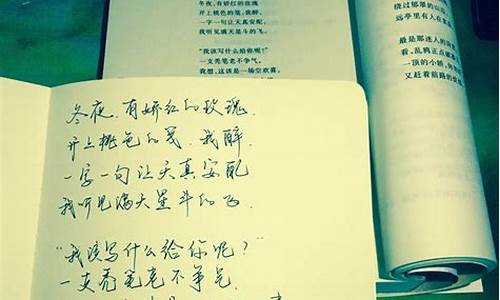 冬夜，有娇红的玫瑰
开上桃色的笺，我醉，
一字一句让天真安配，
我听见满天星斗的飞。
“我该写什么给你呢？”
一支秃笔老不争气，
我想，这该是一场空欢喜，
绕过郁翠的山
里有人在
最是那迷人的
看，乱鸦正点
一顶的小轿，
又赶着前路的
冬夜，有娇红的玫瑰，
开上桃色的笺，我醉，
一字一句让天真安配
我听见满天星斗的飞.
“我该写什么给你呢？”
一支秃笔老不争气，